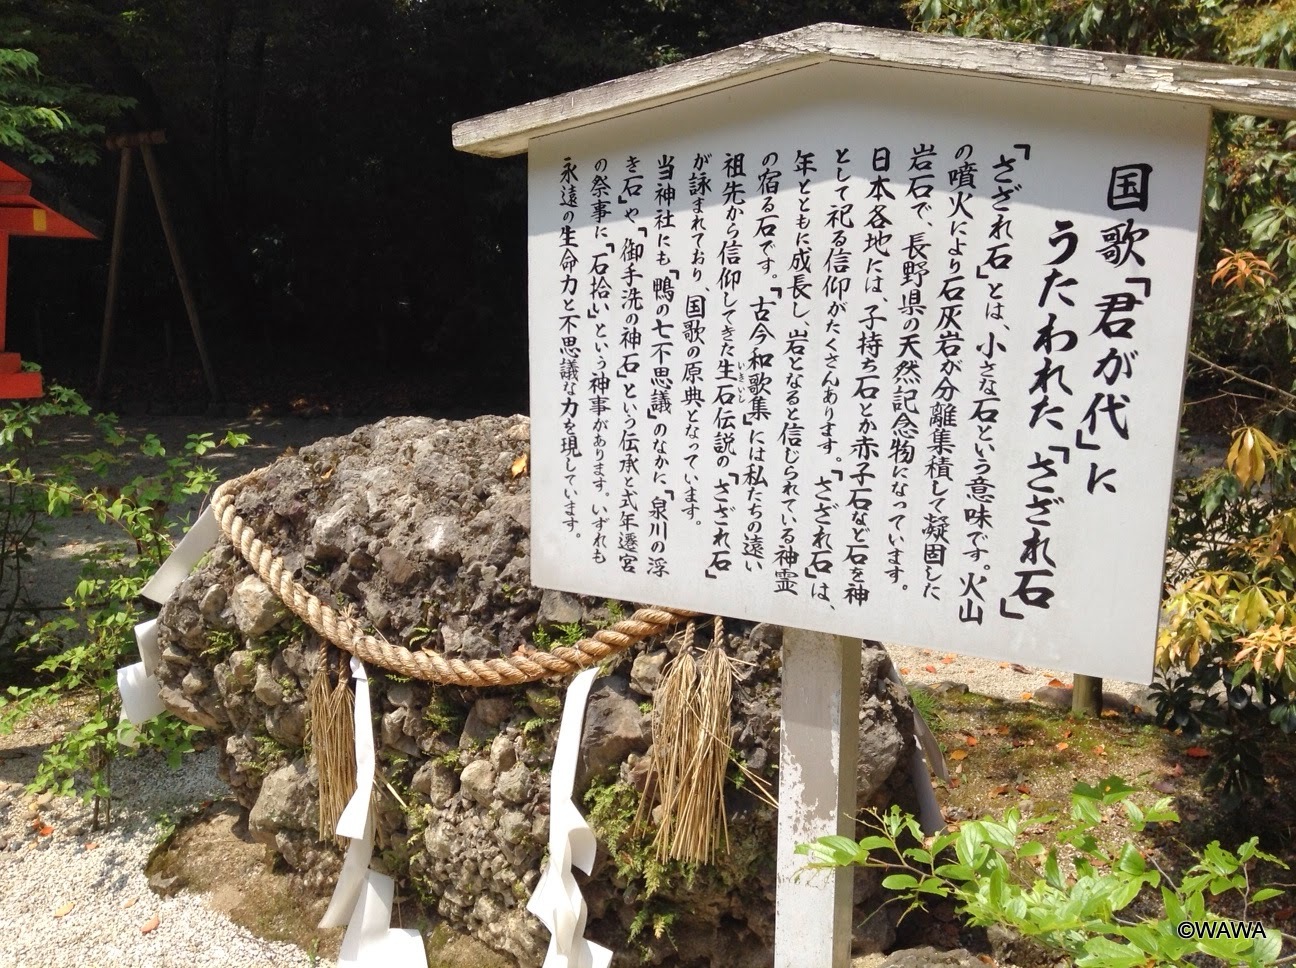 国歌「君が代」に
うたわれた「さざれ石」
「さざれ石」とは、小さな石という意味です。火山
の噴火により石灰岩が分離集積して凝固した
岩石で、長野県の天然記念物になっています。
日本各地には、子持ち石とか赤子石など石を神
として祀る信仰がたくさんあります。「さざれ石」は、
年とともに成長し、岩となると信じられている神霊
の宿る石です。「古今和歌集」には私たちの遠い
祖先から信仰してきた生石伝説の「さざれ石」
いきいし
が詠まれており、国歌の原典となっています。
当神社にも「鴨の七不思議」のなかに、「泉川の浮
き石」や「御手洗の神石」という伝承と式年遷宮
の祭事に「石拾い」という神事があります。いずれも
永遠の生命力と不思議な力を現しています。
©WAWA